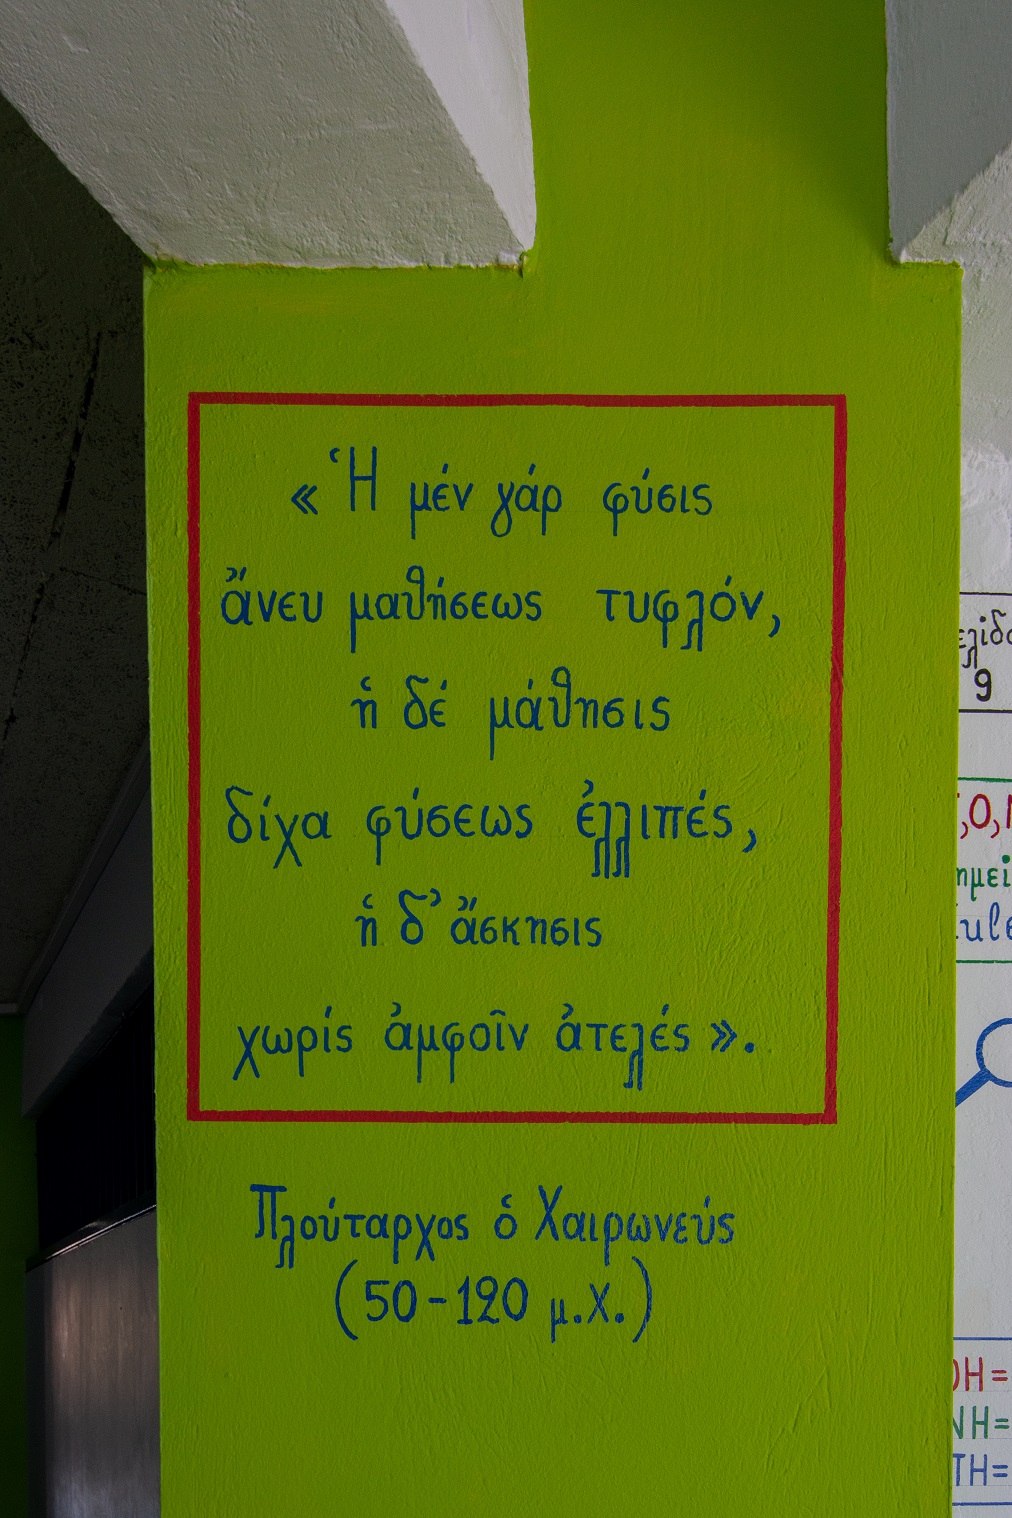 «Ἡ μέν γάρ φύσις
ἄνευ μαθήσεως τυφλόν,
ἡ δέ μάθησις
δίχα φύσεως ἐλλιπές,
ἡ δ’ ἄσκησις
χωρίς ἀμφοῖν ἀτελές».
Πλούταρχος ὁ Χαιρωνεύς
(50-120 μ.Χ.)
9